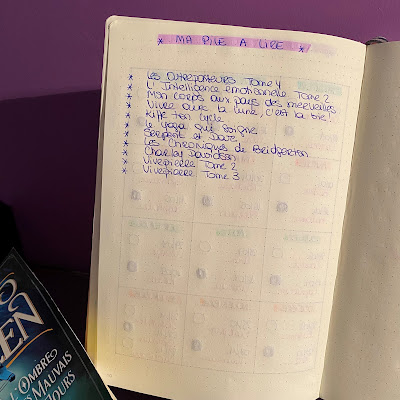 * MA PILE A LIRE *
* Les Outrepasseurs Tome 4
* L'Intelligence émotionnelle Tome 2
* Mon corps aux pays des merveilles
* Vivre avec la lune, c'est la vie !
* Kiffe ton cycle
* Le yoga qui soigne
* Serpent et Dove
* Les Chroniques de Bridgerton
* Charley Davidson
* Vivepierre Tome 2
* Vivepierre Tome 3
L'OMBRE
MAUVAIS
JOURS